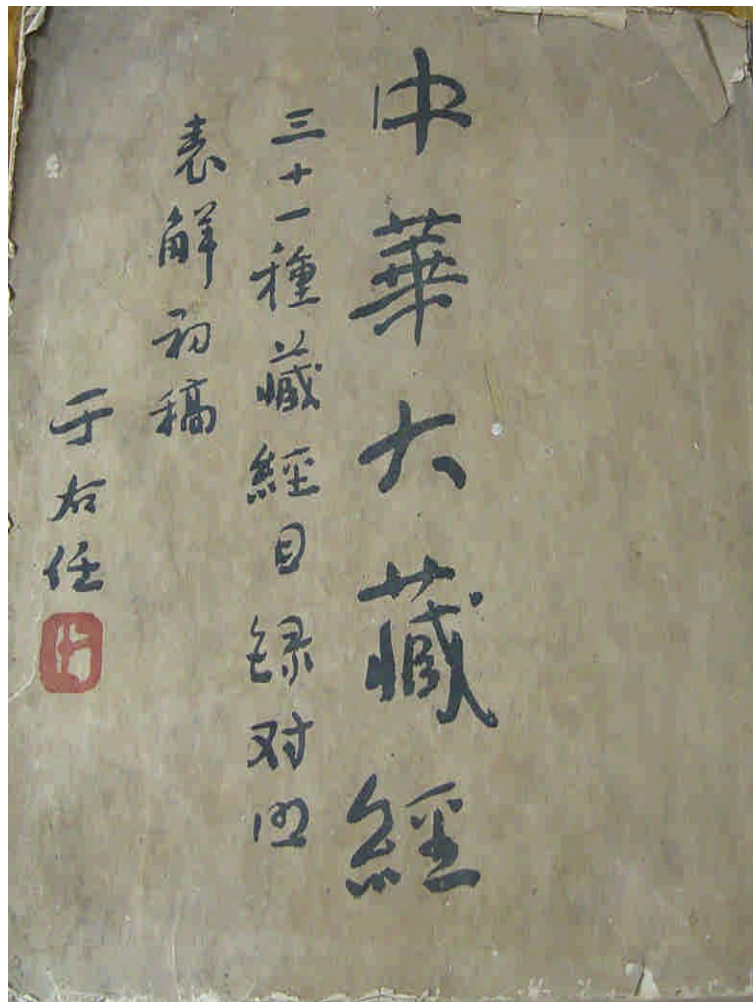 中華大藏經
三十一種藏經目録对照
表解初稿
于右任